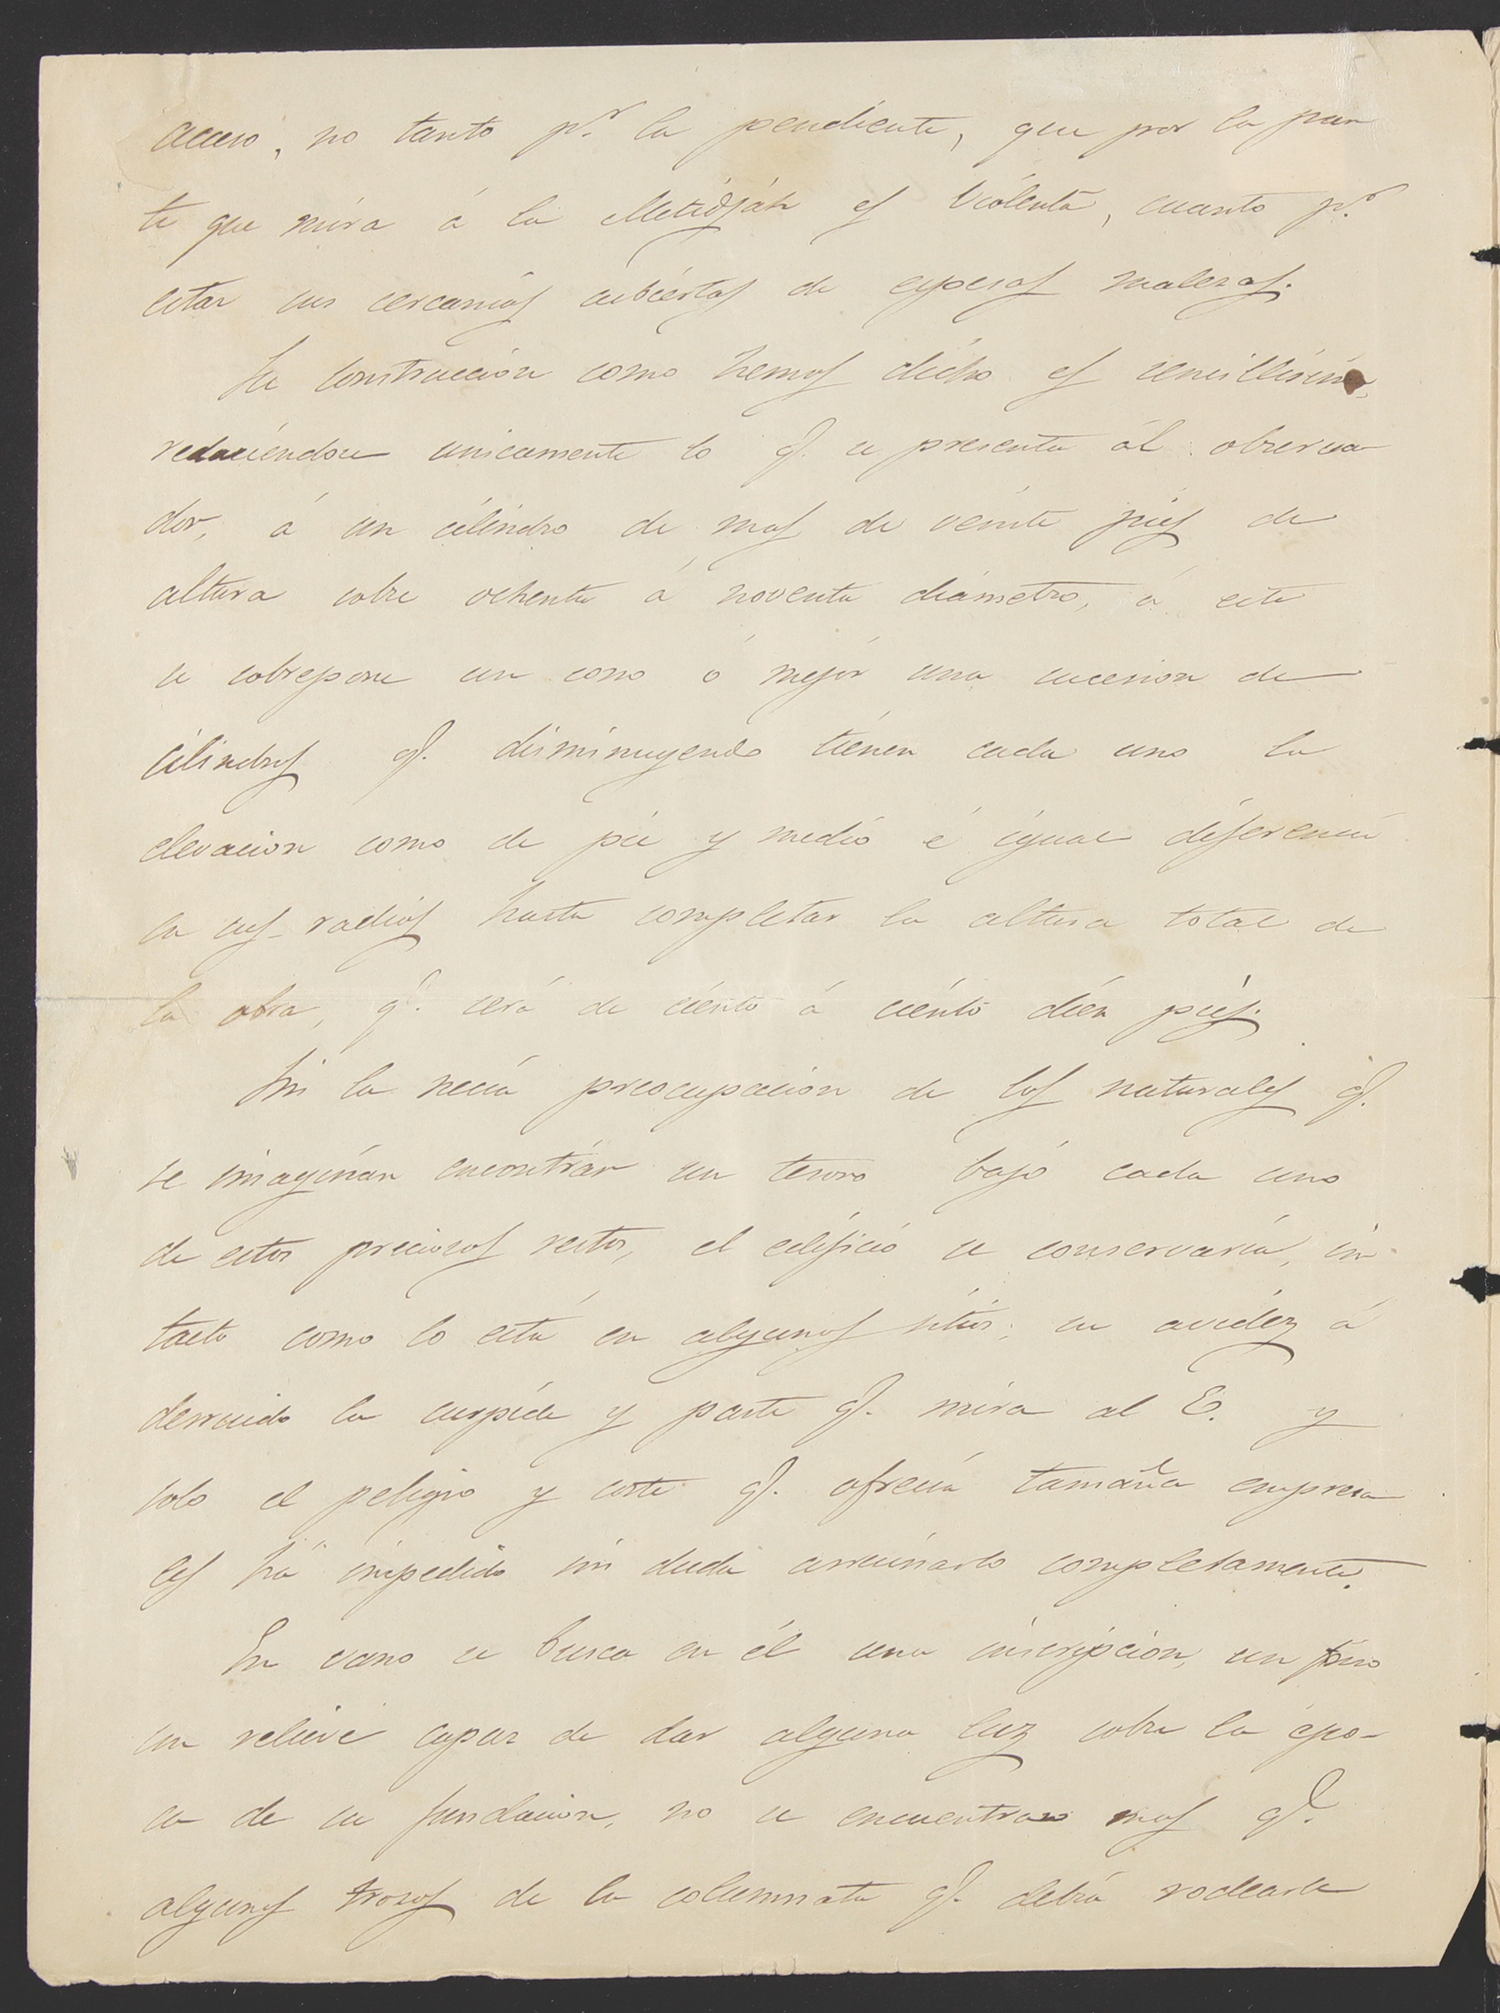 acceso, no tanto pr. la pendiente, que por la par
te que mira á la Metidjáh es violenta, cuanto pr.
estar sus cercanías cubiertas de espesas malezas.
Su construccion como hemos dicho es sencillísima,
reduciéndose unicamente lo q. se presenta ál observa
dor, á un cilindro de mas de veinte piés de
altura sobre ochenta á noventa diámetro, á este
se sobrepone un cono ó mejor una sucesion de
cilindros q. disminuyendo tienen cada uno la
elevacion como de pié y medio é igual diferencia
en sus radios hasta completar la altura total de
la obra, q. será de ciento á ciento diez piés.
Sin la necia preocupacion de los naturales q.
se imaginan encontrar un tesoro bajo cada uno
de estos preciosos restos, el edificio se conservaria, in
tacto como lo está en algunos sitios; su avidéz á
derruido la cuspide y parte q. mira al E. y
solo el peligro y coste q. ofrecia tamaña empresa
les há impedido sin duda arruinarlo completamente.
En vano se busca en él una inscripcion, un
un relieve capaz de dar alguna luz sobre la épo-
ca de su fundacion, no se encuentran mas q.
algunos trozos de la columnata q. debia rodearle